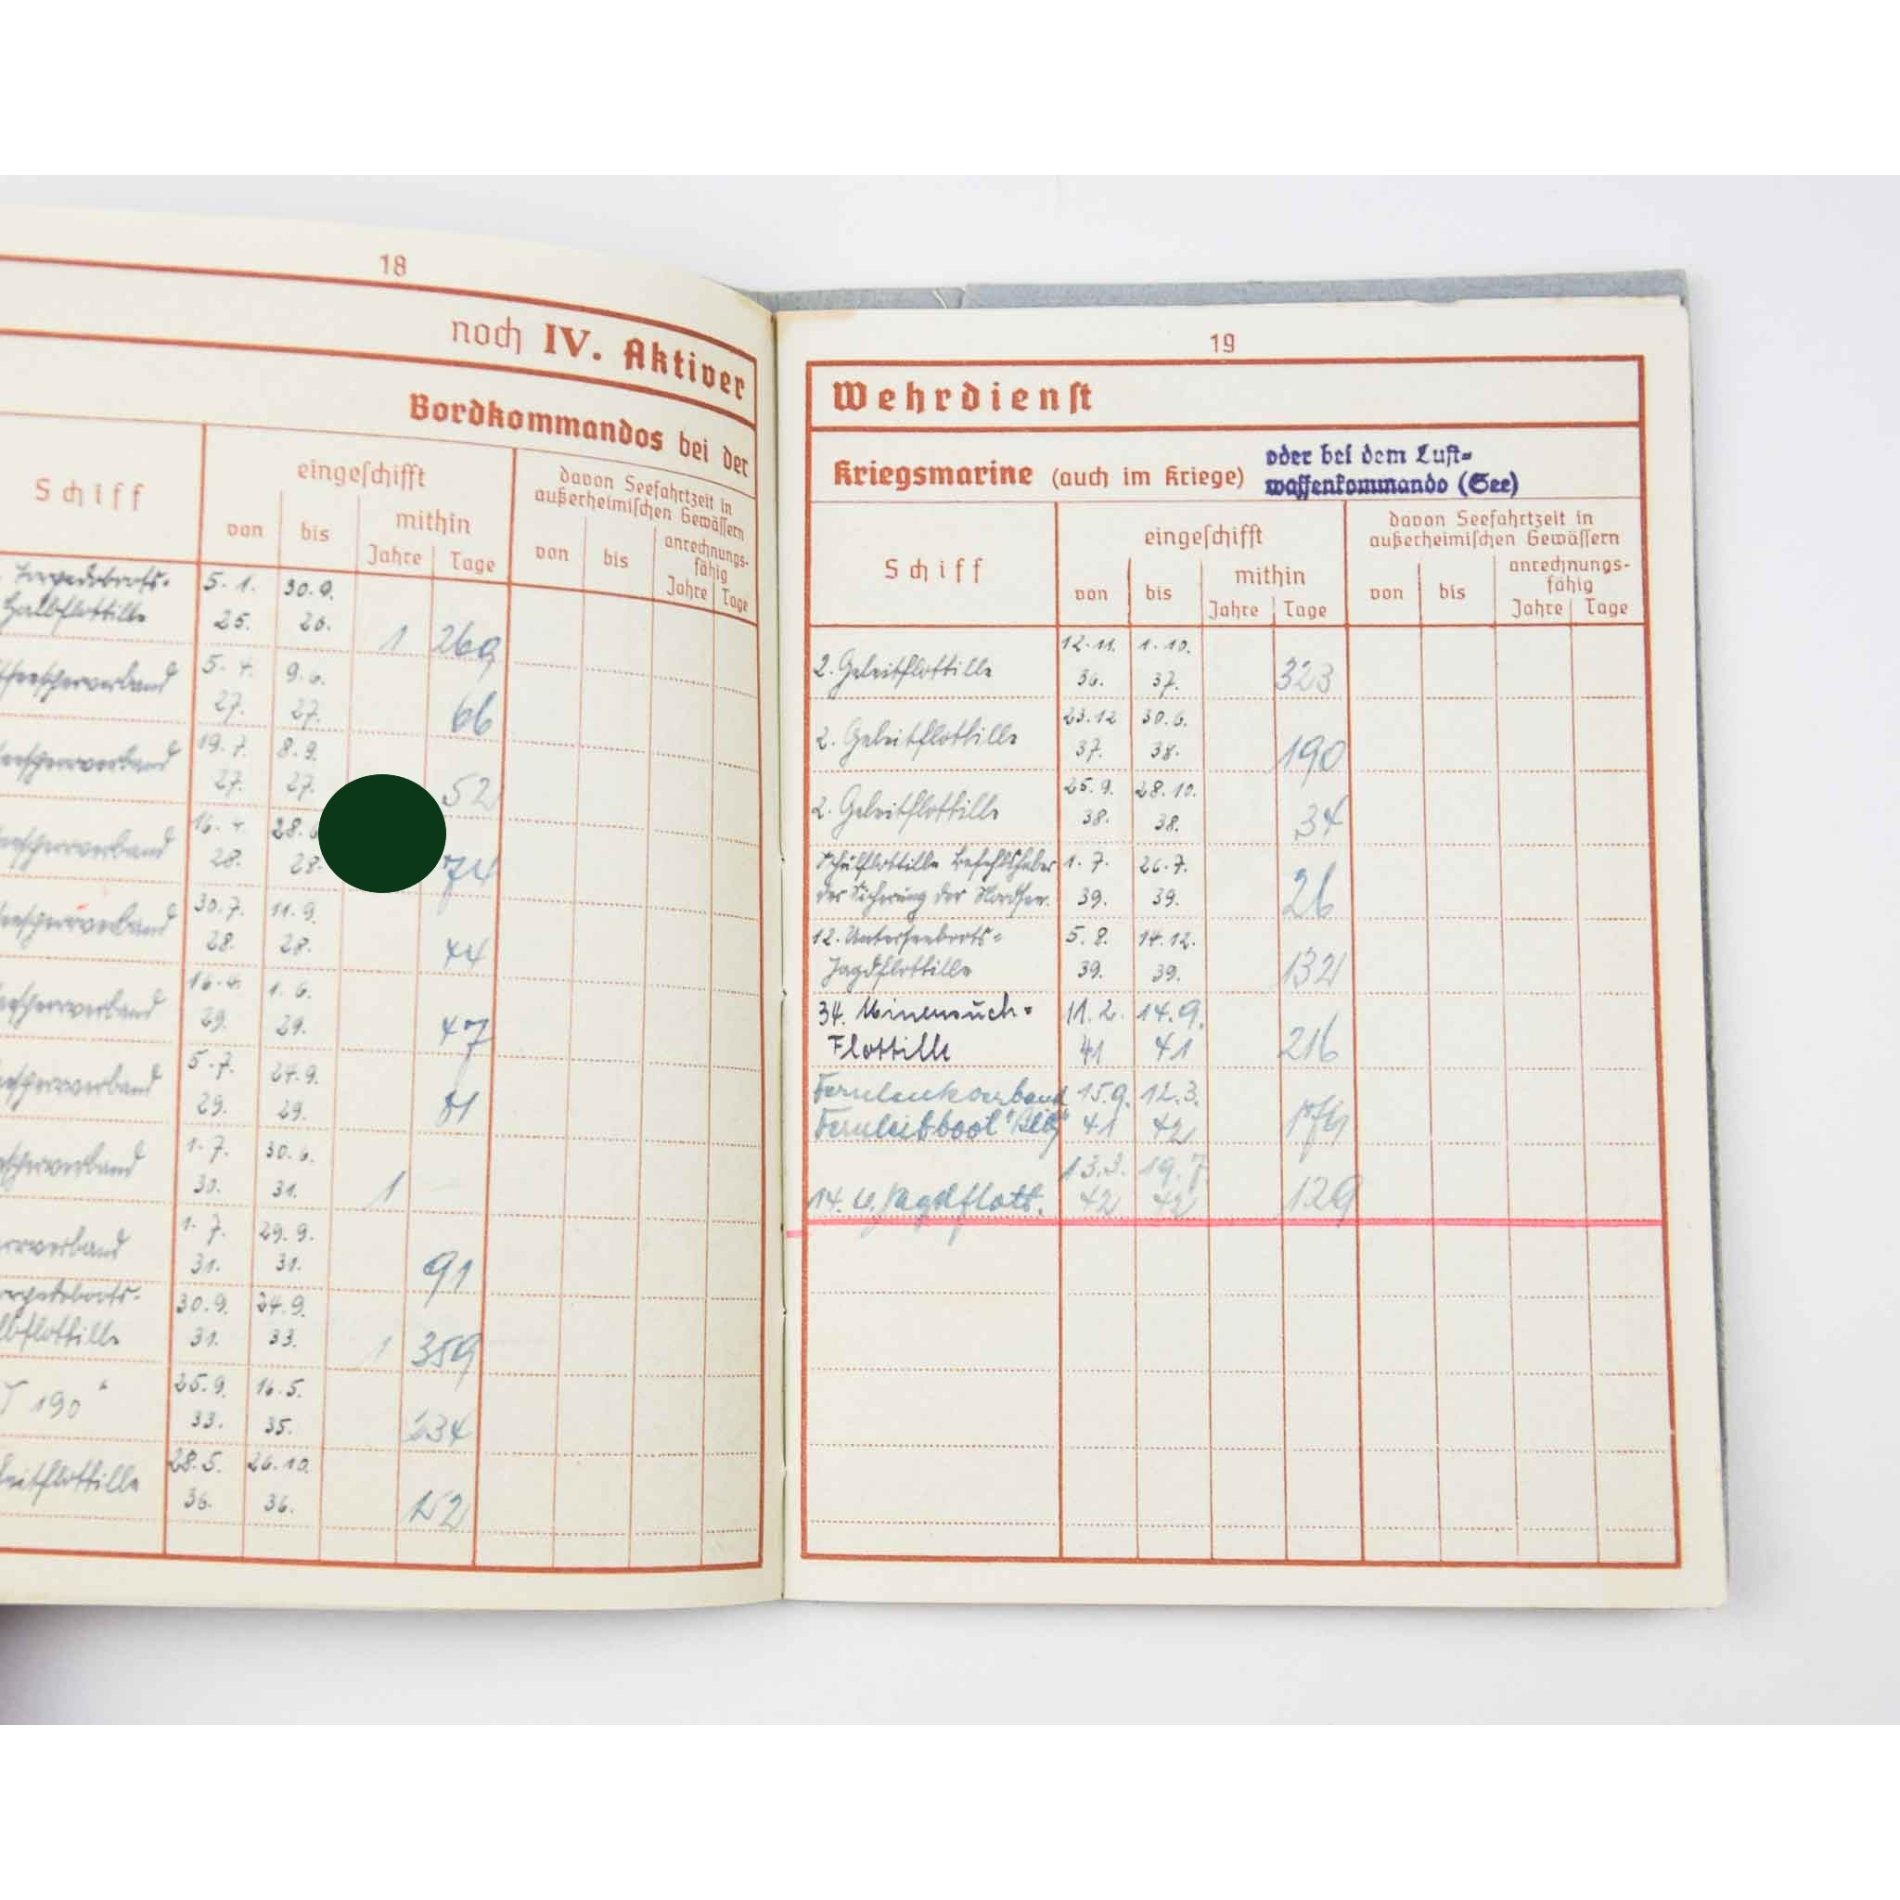 18
noch IV. Aktiver
Bordkommandos bei der
Schiff
eingeschifft
von bis
mithin
Jahre Tage
davon Seefahrtzeit in
außerheimischen Gewässern
von bis
anrechnungs-
fähig
Jahre Tage
Torpedoboots-
Halbflottille
5. 1. 25. 30. 9. 26. 1 269
5. 4. 27. 9. 6. 27. 66
19. 7. 27. 8. 9. 27. 52
16. 4. 28. 28. 28. 74
30. 7. 28. 11. 9. 28. 44
16. 4. 29. 1. 6. 29. 47
5. 7. 29. 24. 9. 29. 81
1. 7. 30. 30. 6. 31. 1
1. 7. 31. 29. 9. 31. 91
lbflottille
30. 9. 31. 24. 9. 33. 1 359
T 190"
25. 9. 33. 16. 5. 35. 234
eitflottille
28. 5. 36. 26. 10. 36. 152
19
Wehrdienst
Kriegsmarine (auch im Kriege)
oder bei dem Luft-
waffenkommando (See)
Schiff
eingeschifft
von bis
mithin
Jahre Tage
davon Seefahrtzeit in
außerheimischen Gewässern
von bis
anrechnungs-
fähig
Jahre Tage
2. Geleitflottille 12. 11. 36. 1. 10. 37. 323
2. Geleitflottille 23. 12 37. 30. 6. 38. 190
2. Geleitflottille 25. 9. 38. 28. 10. 38. 34
Schulflottille Befehlshaber
der Sicherung der Nordsee. 1. 7. 39. 26. 7. 39. 26
12. Unterseeboots-
Jagdflottille 5. 8. 39. 14. 12. 39. 132
34. Minensuch-
Flottille 11. 2. 41 14. 9. 41 216
Fernlenkverband
Fernleitboot 15. 9. 41 12. 3. 42
14. U. Jagdflott. 13. 3. 42 19. 7. 42 129